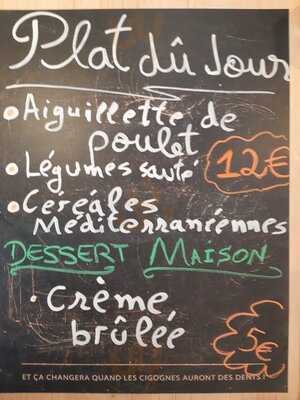 Plat dû Jour
Aiguillette de
poulet
Légumes sauté
12€
Céréales
Méditerranéennes
DESSERT MAISON
Crème
brûlée
5€
ET ÇA CHANGERA QUAND LES CIGOGNES AURONT DES DENTS !